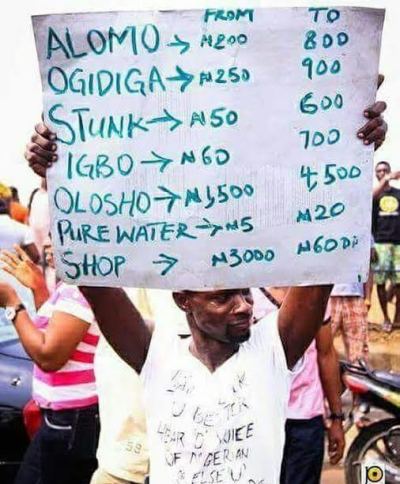 FROM TO
ALOMO → ₦200 800
OGIDIGA → ₦250 900
STUNK → ₦50 600
IGBO → ₦60 700
OLOSHO → ₦1,500 4,500
PURE WATER → ₦5 ₦20
SHOP → ₦3000 ₦600
U BETTER
HEAR D' VOICE
OF NIGERIAN
ELSE U